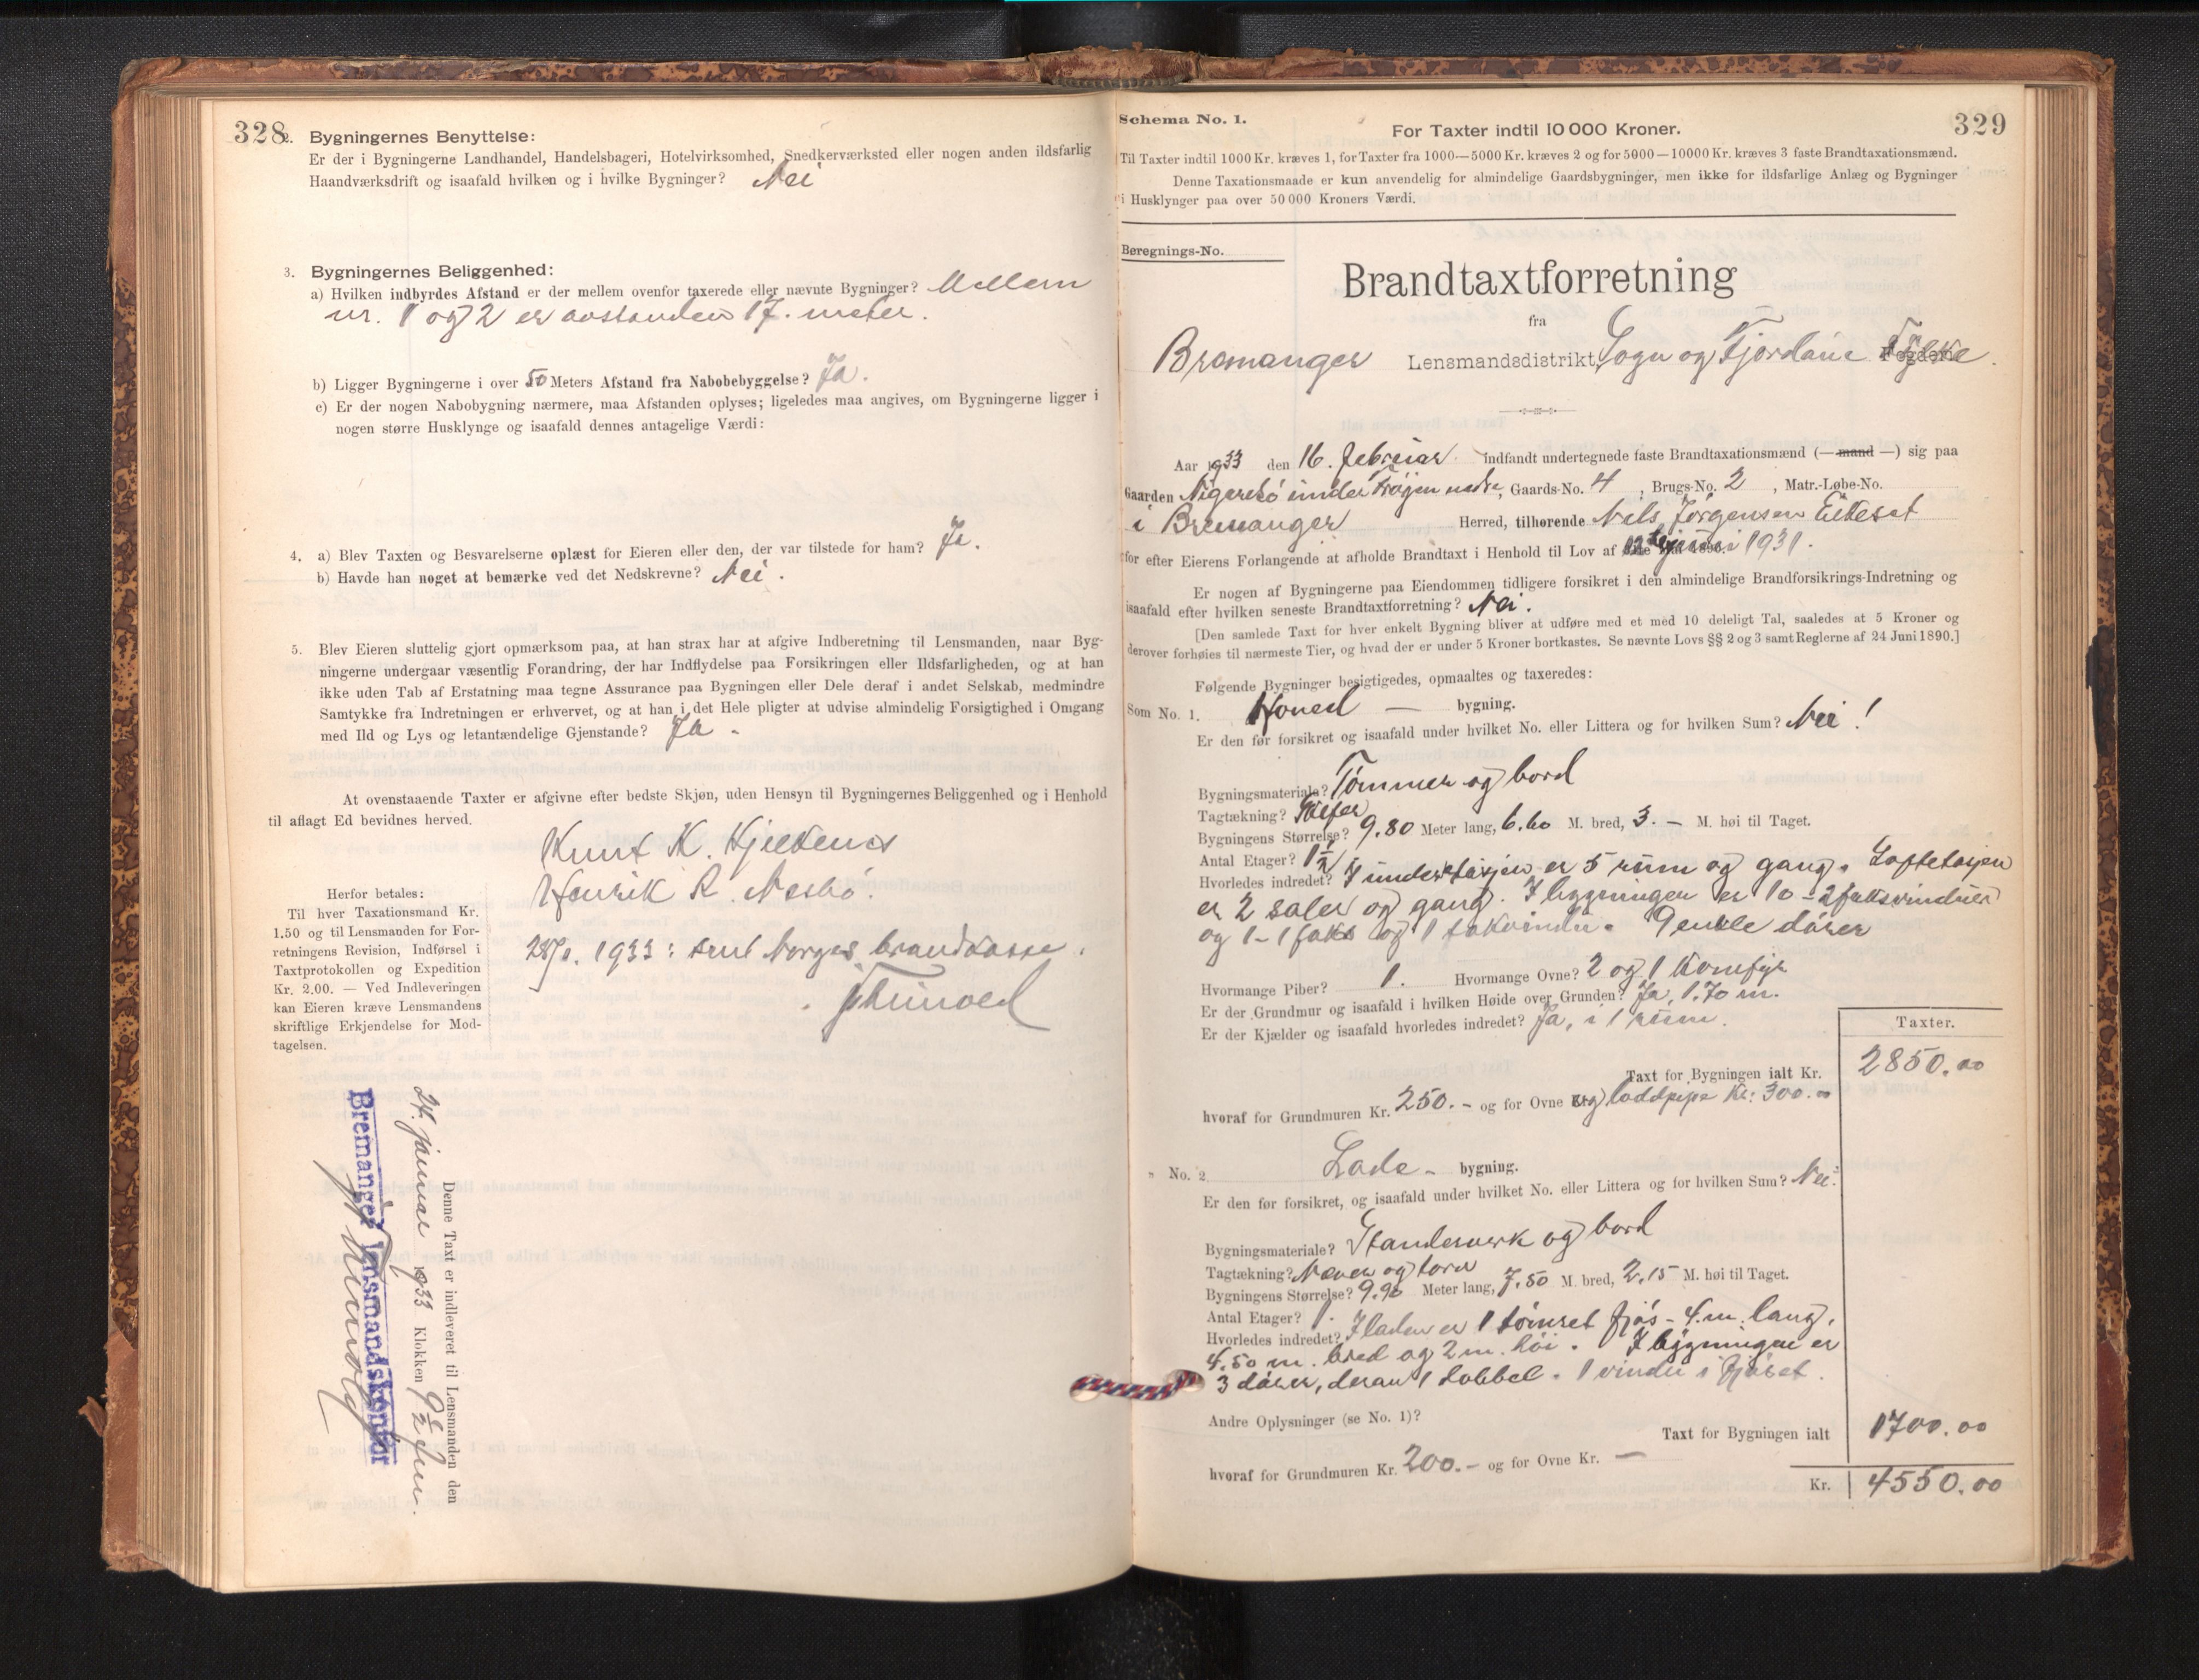 328
2. Bygningernes Benyttelse:
Er der i Bygningerne Landhandel, Handelsbageri, Hotelvirksomhed, Snedkerværksted eller nogen anden ildsfarlig
Haandværksdrift og isaafald hvilken og i hvilke Bygninger? Nei
3. Bygningernes Beliggenhed:
a) Hvilken indbyrdes Afstand er der mellem ovenfor taxerede eller nævnte Bygninger? Mellem
nr. 1 og 2 er avstanden 17. meter.
b) Ligger Bygningerne i over 50 Meters Afstand fra Nabobebyggelse? Ja.
c) Er der nogen Nabobygning nærmere, maa Afstanden oplyses; ligeledes maa angives, om Bygningerne ligger i
nogen større Husklynge og isaafald dennes antagelige Værdi:
4. a) Blev Taxten og Besvarelserne oplæst for Eieren eller den, der var tilstede for ham? Ja.
b) Havde han noget at bemærke ved det Nedskrevne? Nei.
5. Blev Eieren sluttelig gjort opmærksom paa, at han strax har at afgive Indberetning til Lensmanden, naar Byg-
ningerne undergaar væsentlig Forandring, der har Indflydelse paa Forsikringen eller Ildsfarligheden, og at han
ikke uden Tab af Erstatning maa tegne Assurance paa Bygningen eller Dele deraf i andet Selskab, medmindre
Samtykke fra Indretningen er erhvervet, og at han i det Hele pligter at udvise almindelig Forsigtighed i Omgang
med Ild og Lys og letantændelige Gjenstande? Ja.
At ovenstaaende Taxter er afgivne efter bedste Skjøn, uden Hensyn til Bygningernes Beliggenhed og i Henhold
til aflagt Ed bevidnes herved.
Knut K.
Henrik R. Nesbö.
1933: sent Norges brandkasse.
Herfor betales:
Til hver Taxationsmand Kr.
1.50 og til Lensmanden for For-
retningens Revision, Indførsel i
Taxtprotokollen og Expedition
Kr. 2.00. — Ved Indleveringen
kan Eieren kræve Lensmandens
skriftlige Erkjendelse for Mod-
tagelsen.
Denne Taxt er indleveret til Lensmanden den
24. januar 1933 Klokken 9
Bremanger lensmandskontor
329
Schema No. 1.
For Taxter indtil 10 000 Kroner.
Til Taxter indtil 1000 Kr. kræves 1, for Taxter fra 1000—5000 Kr. kræves 2 og for 5000—10000 Kr. kræves 3 faste Brandtaxationsmænd.
Denne Taxationsmaade er kun anvendelig for almindelige Gaardsbygninger, men ikke for ildsfarlige Anlæg og Bygninger
i Husklynger paa over 50 000 Kroners Værdi.
Beregnings-No.
Brandtaxtforretning
fra
Bremanger Lensmandsdistrikt, Sogn og Fjordane Fogderi Fylke.
Aar 1933 den 16. februar indfandt undertegnede faste Brandtaxationsmænd (— mand —) sig paa
Gaarden under nedre, Gaards-No. 4, Brugs-No. 2, Matr.-Løbe-No.
i Bremanger Herred, tilhørende Nils Jörgensen
for efter Eierens Forlangende at afholde Brandtaxt i Henhold til Lov af juni 1931.
Er nogen af Bygningerne paa Eiendommen tidligere forsikret i den almindelige Brandforsikrings-Indretning og
isaafald efter hvilken seneste Brandtaxtforretning? Nei.
[Den samlede Taxt for hver enkelt Bygning bliver at udføre med et med 10 deleligt Tal, saaledes at 5 Kroner og
derover forhøies til nærmeste Tier, og hvad der er under 5 Kroner bortkastes. Se nævnte Lovs §§ 2 og 3 samt Reglerne af 24 Juni 1890.]
Følgende Bygninger besigtigedes, opmaaltes og taxeredes:
Som No. 1. Hoved — bygning.
Er den før forsikret og isaafald under hvilket No. eller Littera og for hvilken Sum? Nei!
Bygningsmateriale? Tömmer og bord
Tagtækning? Skifer
Bygningens Størrelse? 9.80 Meter lang, 6.60 M. bred, 3. — M. høi til Taget.
Antal Etager? 1½
Hvorledes indredet? I underetasjen er 5 rum og gang. Loftetasjen
er 2 saler og gang. I bygningen er 10 - 2 faksvinduer
og 1-1 faks og 1 takvindu. 9 enkle dörer
Hvormange Piber? 1. Hvormange Ovne? 2 og 1 Komfyr
Er der Grundmur og isaafald i hvilken Høide over Grunden? Ja, 1.70 m.
Er der Kjælder og isaafald hvorledes indredet? Ja, i 1 rum.
Taxter.
Taxt for Bygningen ialt Kr. 2850.00
hvoraf for Grundmuren Kr. 250.— og for Ovne og loddpipe Kr: 300.00
„ No. 2. Lade - bygning.
Er den før forsikret, og isaafald under hvilket No. eller Littera og for hvilken Sum? Nei.
Bygningsmateriale? Standerverk og bord
Tagtækning? Never og torv
Bygningens Størrelse? 9.90 Meter lang, 7.50 M. bred, 2.15 M. høi til Taget.
Antal Etager? 1.
Hvorledes indredet? I laden er 1 tömret fjös - 4.m. lang,
4.50 m. bred og 2 m. höi. I bygningen er
3 dörer, derav 1 dobbel. 1 vindu i fjöset.
Andre Oplysninger (se No. 1)?
Taxt for Bygningen ialt 1700.00
hvoraf for Grundmuren Kr. 200.— og for Ovne Kr. —
Kr. 4550.00